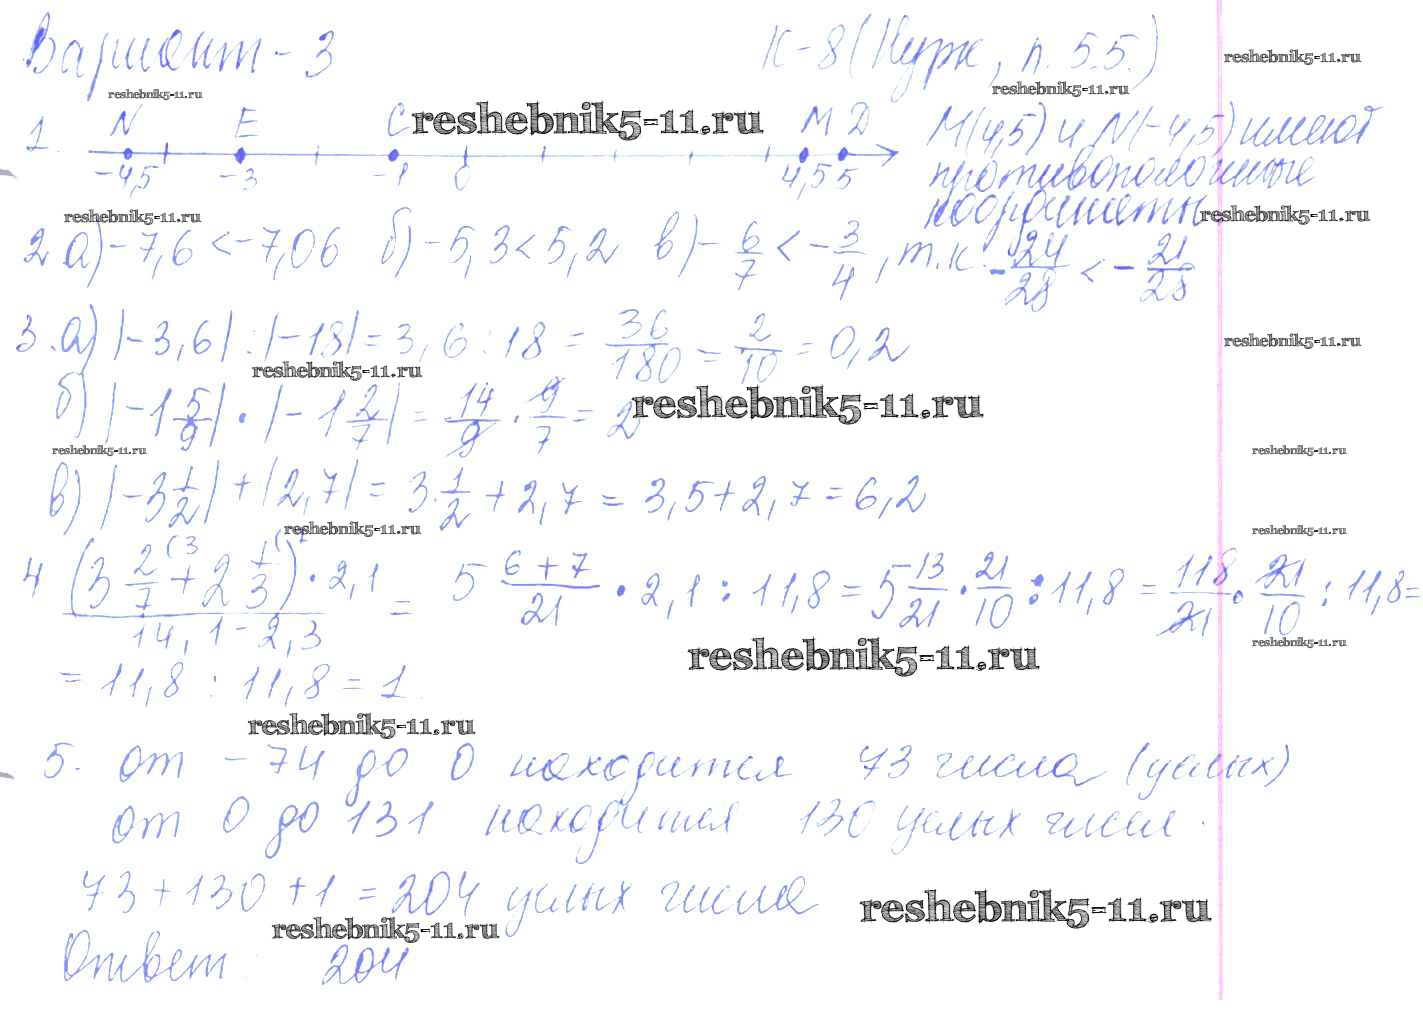 Вариант - 3
К-8 (Нурк, п. 5.5.)
reshebnik5-11.ru
reshebnik5-11.ru
reshebnik5-11.ru
reshebnik5-11.ru
1. N E C M D
-4,5 -3 -1 0 4,5 5
M(4,5) и N(-4,5) имеют
противоположные
координаты
reshebnik5-11.ru
reshebnik5-11.ru
2 а) -7,6 < -7,06 б) -5,3 < 5,2 в) -6/7 < -3/4, т.к. -24/28 < -21/28
3. а) |-3,6| : |-18| = 3,6 : 18 = 36/180 = 2/10 = 0,2
reshebnik5-11.ru
reshebnik5-11.ru
б) |-1 5/9| · |-1 2/7| = 14/9 · 9/7 = 2
reshebnik5-11.ru
reshebnik5-11.ru
reshebnik5-11.ru
в) |-3 1/2| + |2,7| = 3 1/2 + 2,7 = 3,5 + 2,7 = 6,2
reshebnik5-11.ru
reshebnik5-11.ru
4 (3 2/7 + 2 1/3) · 2,1 / 14,1 - 2,3 = 5 6+7/21 · 2,1 : 11,8 = 5 13/21 · 21/10 : 11,8 = 118/21 · 21/10 : 11,8 =
reshebnik5-11.ru
reshebnik5-11.ru
= 11,8 : 11,8 = 1
reshebnik5-11.ru
5. от -74 до 0 находится 73 числа (целых)
от 0 до 131 находится 130 целых чисел.
73 + 130 + 1 = 204 целых числа
reshebnik5-11.ru
reshebnik5-11.ru
Ответ: 204